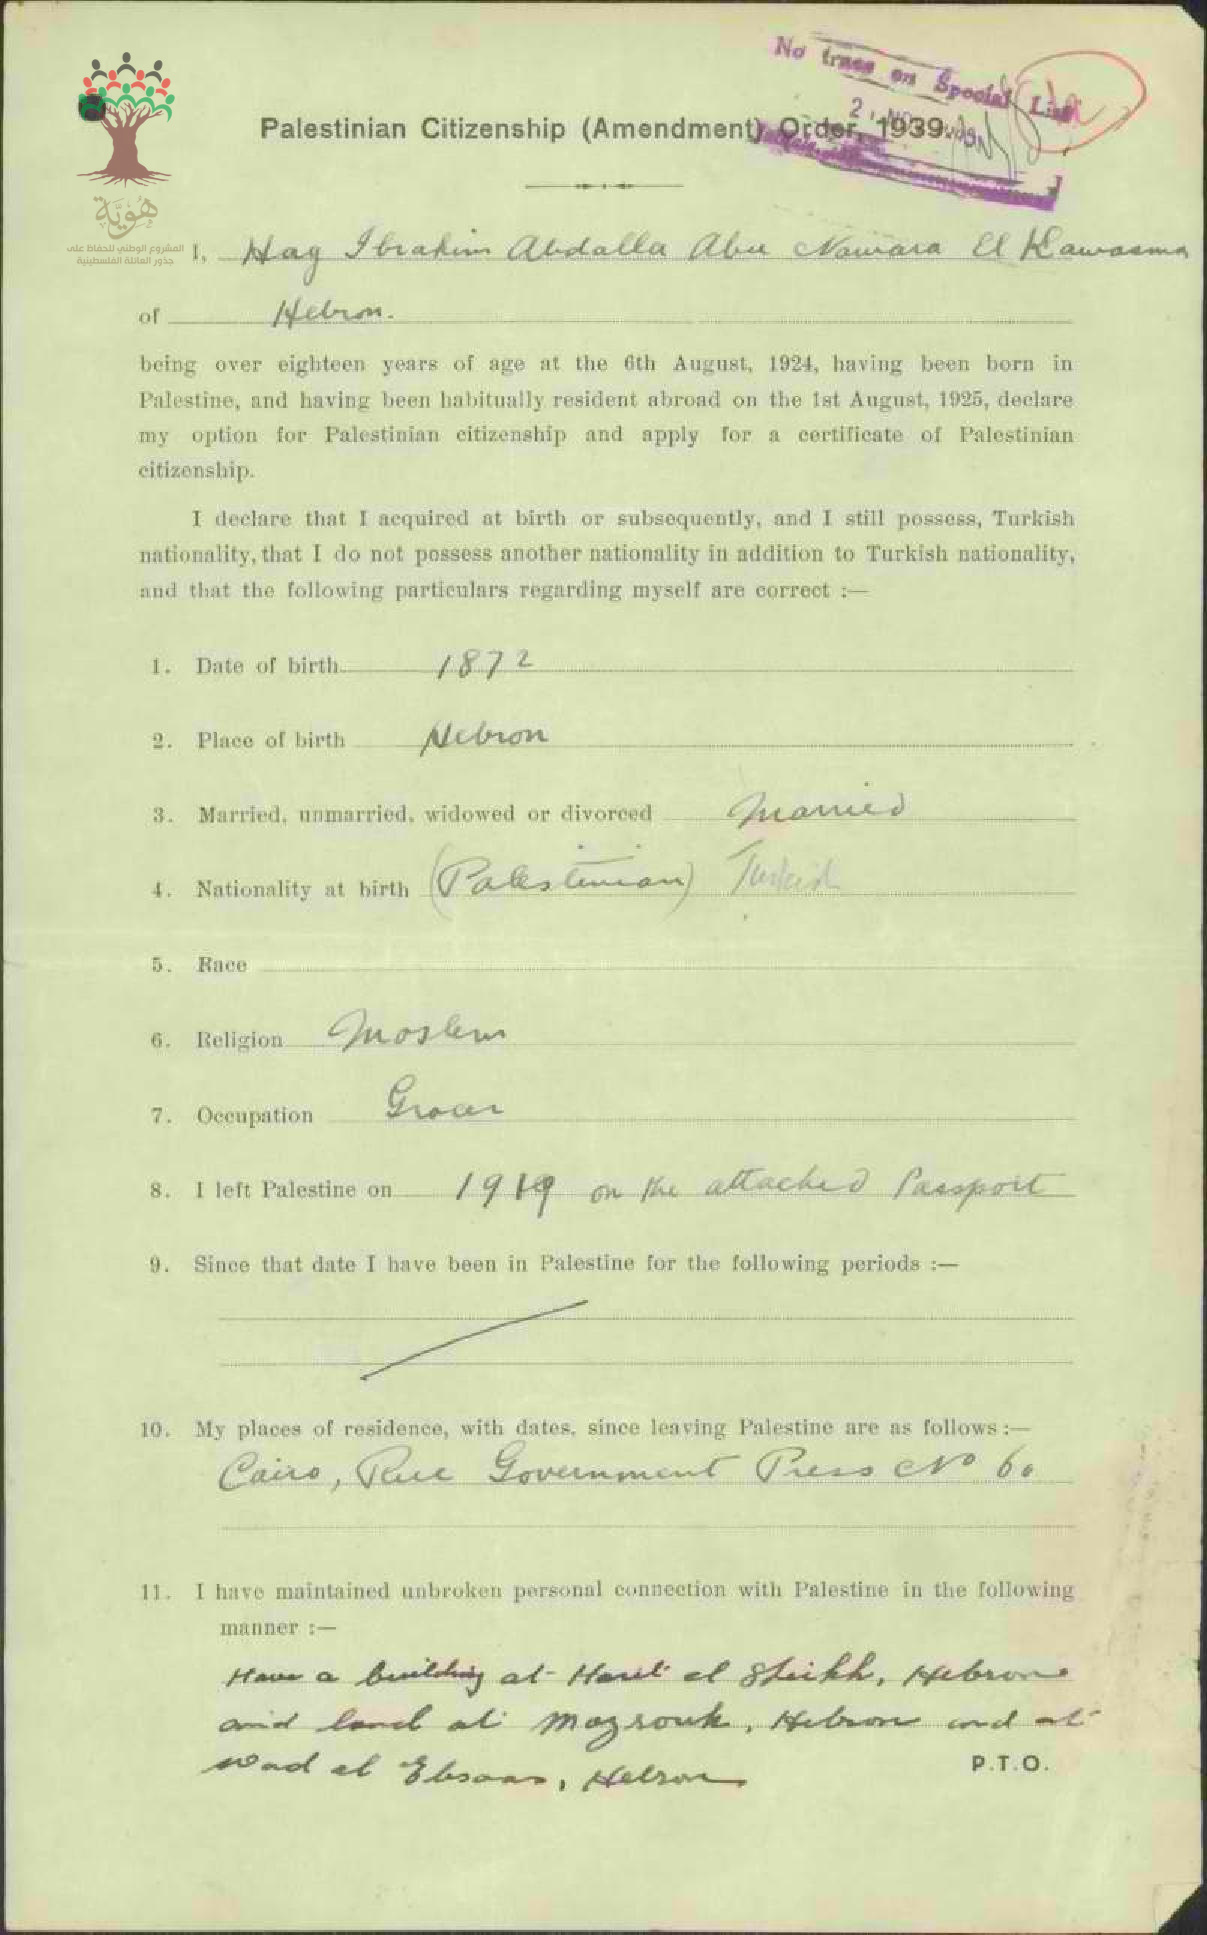 No trace on Special List
Palestinian Citizenship (Amendment) Order, 1939.
هُوِيَّة
المشروع الوطني للحفاظ على
جذور العائلة الفلسطينية
I, Hag Ibrahim Abdalla Abu Nawara El Kawasma
of Hebron.
being over eighteen years of age at the 6th August, 1924, having been born in
Palestine, and having been habitually resident abroad on the 1st August, 1925, declare
my option for Palestinian citizenship and apply for a certificate of Palestinian
citizenship.
I declare that I acquired at birth or subsequently, and I still possess, Turkish
nationality, that I do not possess another nationality in addition to Turkish nationality,
and that the following particulars regarding myself are correct :—
1. Date of birth 1872
2. Place of birth Hebron
3. Married, unmarried, widowed or divorced Married
4. Nationality at birth (Palestinian) Turkish
5. Race
6. Religion Moslem
7. Occupation Grocer
8. I left Palestine on 1919 on the attached Passport
9. Since that date I have been in Palestine for the following periods :—
10. My places of residence, with dates, since leaving Palestine are as follows :—
Cairo, Rue Government Press No 60
11. I have maintained unbroken personal connection with Palestine in the following
manner :—
Have a building at Haret el Sheikh, Hebron
and land at Mazrouk, Hebron and at
Wad el Ebsaas, Hebron
P.T.O.